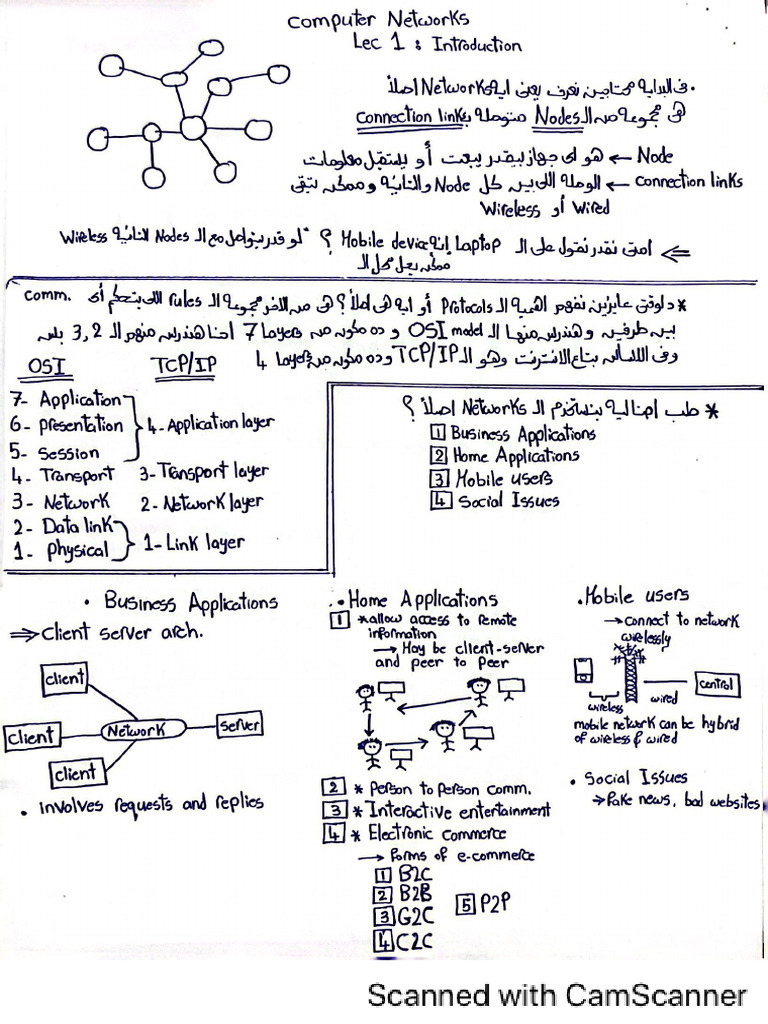 Computer Networks
Lec 1 : Introduction
. فى البداية محتاجين نعرف يعنى ايه Networks اصلاً
هى مجموعة من الـ Nodes متوصلة بـ connection link
Node ← هو اى جهاز بيقدر يبعت أو يستقبل معلومات
connection links ← الوصلة اللى بين كل Node والتانية وممكن تبقى
Wired أو Wireless
⇐ امتى نقدر نقول على الـ Laptop إنه Mobile device ؟ لو قدر يتواصل مع الـ Nodes التانية Wireless
* دلوقتى عايزين نفهم اهمية الـ Protocols أو ايه هى اصلاً ؟ هى من الاخر مجموعة الـ rules اللى بتحكم أى comm.
بين طرفين وهندرس منها الـ OSI model و ده مكون من 7 Layers احنا هندرس منهم الـ 3,2 بس
وفى اللى بتاع الانترنت وهو الـ TCP/IP وده مكون من 4 Layers
OSI TCP/IP
7- Application
6- presentation
5- Session
4- Application layer
4- Transport 3- Transport layer
3- Network 2- Network layer
2- Data link
1- physical
1- Link layer
* طب احنا ليه بنستخدم الـ Networks اصلاً ؟
1 Business Applications
2 Home Applications
3 Mobile users
4 Social Issues
. Business Applications
⇒ Client server arch.
client
client
client
Network
server
. involves requests and replies
. Home Applications
1 * allow access to remote
information
→ May be client-server
and peer to peer
2 * Person to Person comm.
3 * Interactive entertainment
4 * Electronic commerce
→ Forms of e-commerce
1 B2C
2 B2B
3 G2C
4 C2C
5 P2P
. Mobile users
→ connect to network
wirelessly
control
wireless wired
mobile network can be hybrid
of wireless & wired
. Social Issues
→ Fake news, bad websites
Scanned with CamScanner